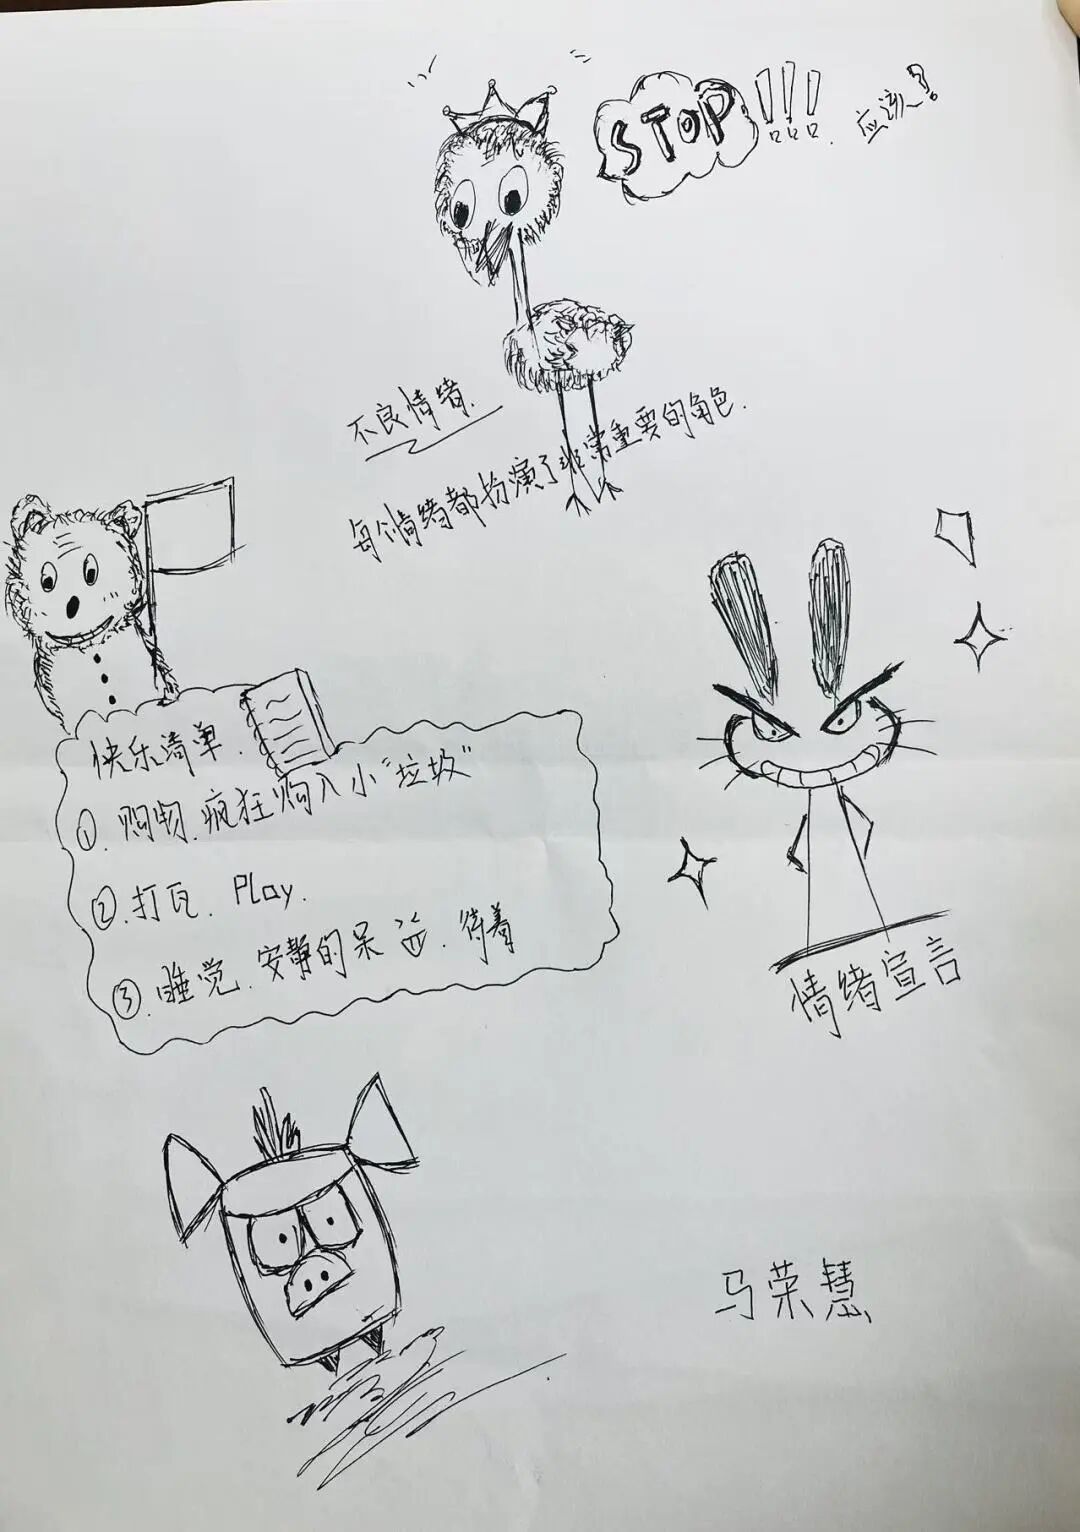 STOP!!! 应该~?
不良情绪.
每个情绪都扮演了非常重要的角色.
快乐清单.
①.购物.疯狂购入小"垃圾"
②.打瓦. Play.
③.睡觉.安静的呆.待着
情绪宣言
马荣慧